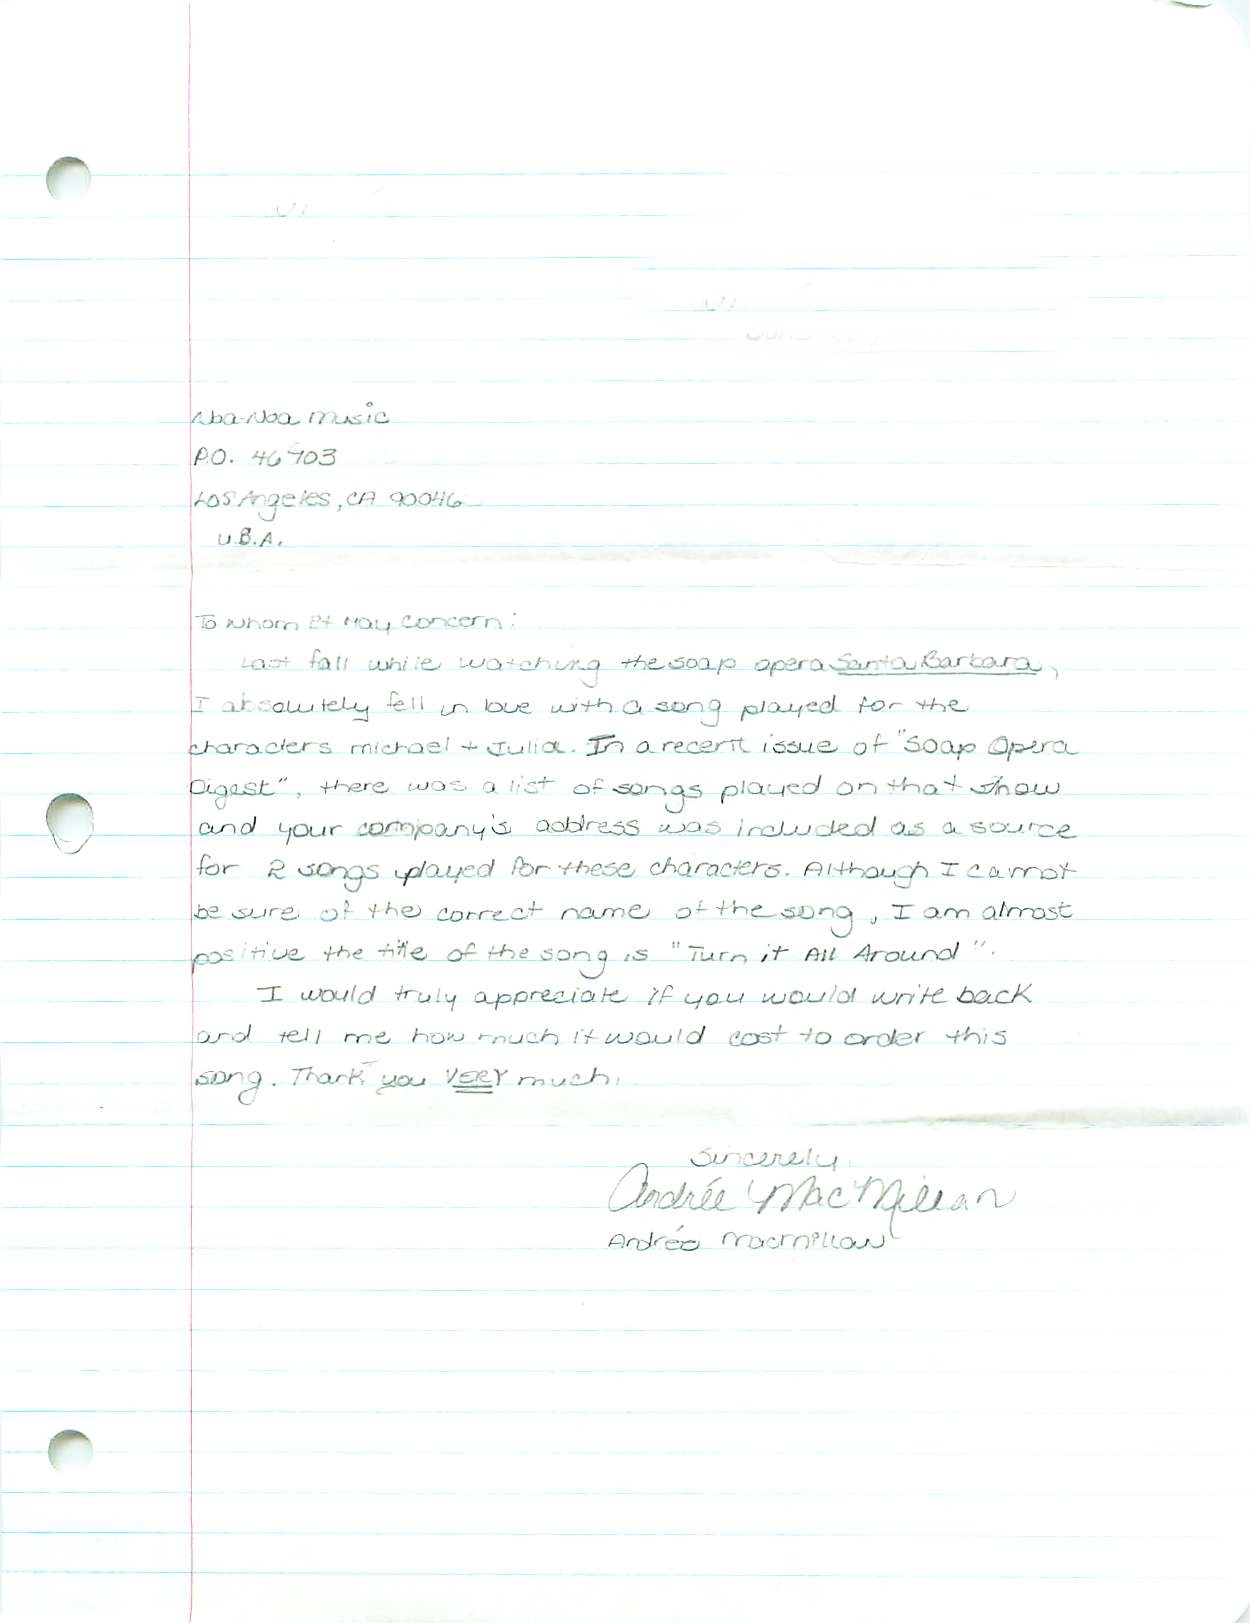 Noa-Noa Music
P.O. 46703
Los Angeles, CA 90046
U.S.A.
To Whom It May Concern:
Last fall while watching the soap opera Santa Barbara,
I absolutely fell in love with a song played for the
characters Michael + Julia. In a recent issue of "Soap Opera
Digest", there was a list of songs played on that show
and your company's address was included as a source
for 2 songs played for these characters. Although I cannot
be sure of the correct name of the song, I am almost
positive the title of the song is "Turn it All Around".
I would truly appreciate if you would write back
and tell me how much it would cost to order this
song. Thank you VERY much.
Sincerely,
Andrée MacMillan
Andrée MacMillan